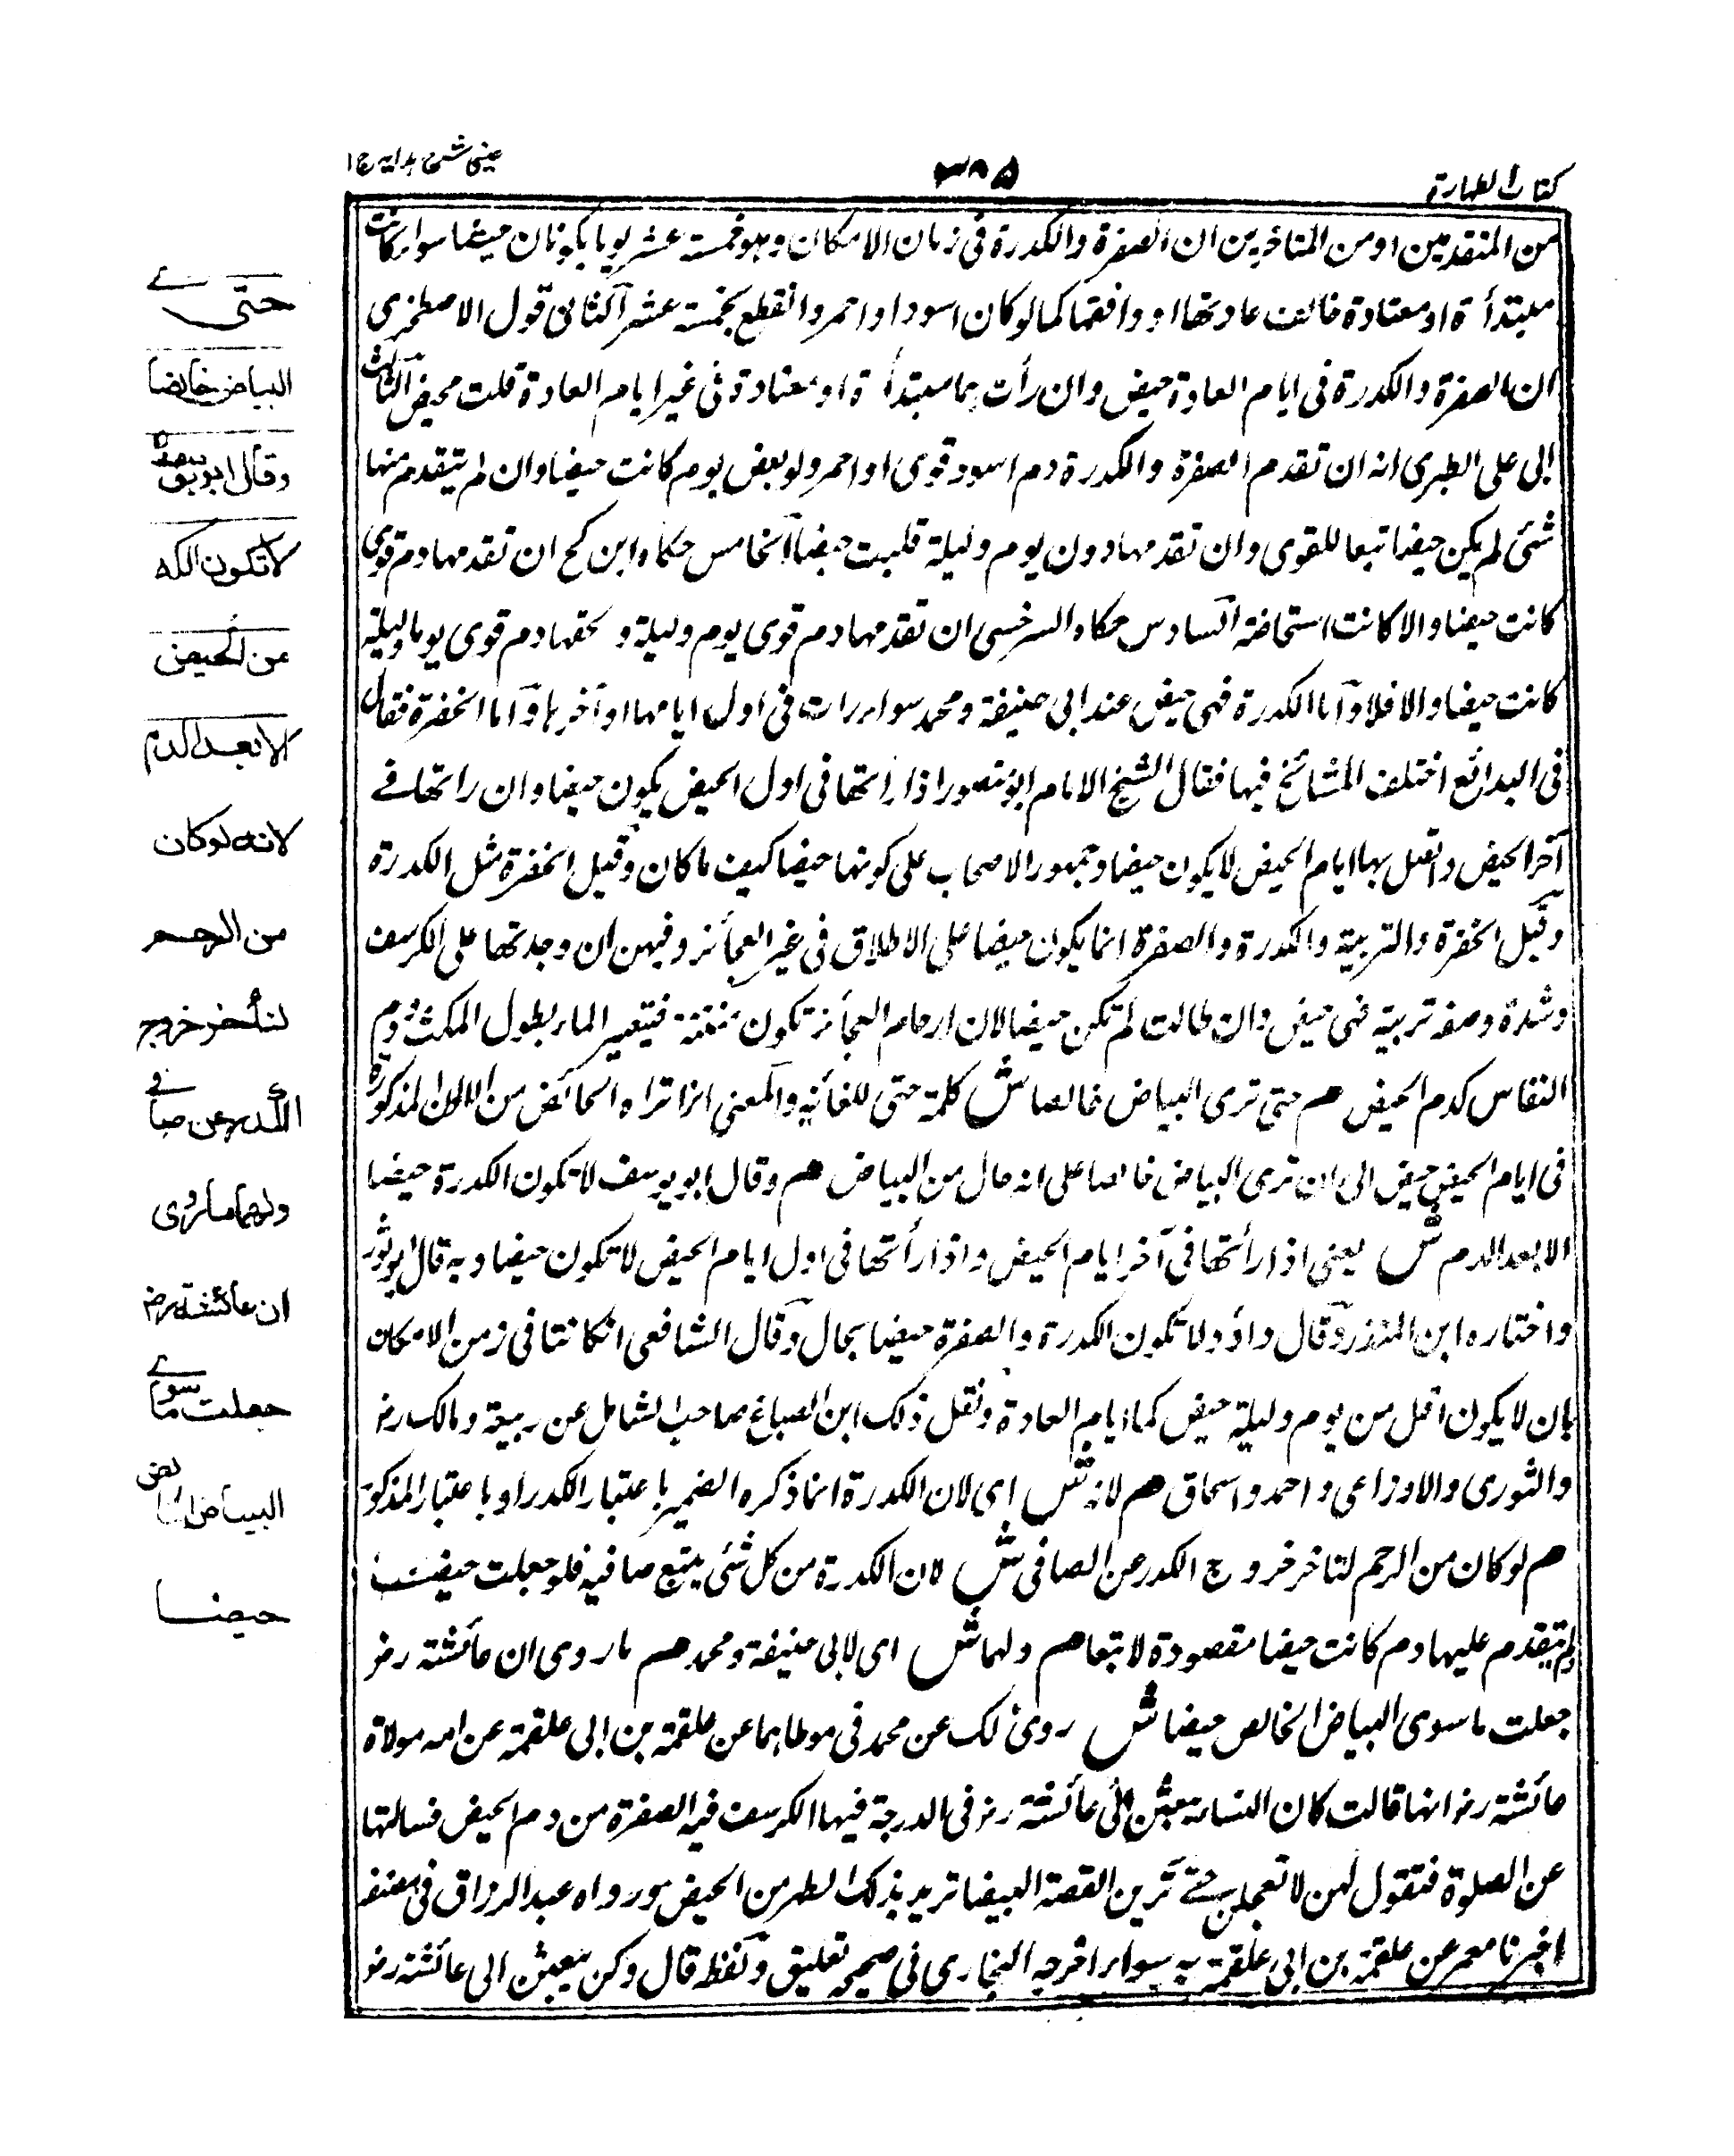 كتاب الطهارة
٣٨٥
عينى شرح هدايه ج ١
من المتقدمين او من المتاخرين ان الصفرة والكدرة فى زمان الامكان وهو خمسة عشر يوما يكونان حيضا سواء كانت
مبتدأة او معتادة خالفت عادتها او وافقها كما لو كان اسود او احمر وانقطع بخمسة عشر الثانى قول الاصطخرى
ان الصفرة والكدرة فى ايام العادة حيض وان رأت بهما مبتدأة او معتادة فى غير ايام العادة قلت محيض الثالث
ابى على الطبرى انه ان تقدم الصفرة والكدرة دم اسود قوى او احمر ولو بعض يوم كانت حيضا وان لم يتقدم منها
شئ لم يكن حيضا تبعا للقوى وان تقدمها دون يوم وليلة قلبت حيضا الخامس حكاه ابن كج ان تقدمها دم قوى
كانت حيضا والا كانت استحاضة السادس حكاه السرخسى ان تقدمها دم قوى يوم وليلة و لحقها دم قوى يوما وليلة
كانت حيضا والا فلا واما الكدرة فهى حيض عند ابى حنيفة ومحمد سواء رات فى اول ايامها او آخرها واما الخضرة فقال
فى البدائع اختلف المشائخ فيها فقال الشيخ الامام ابو منصور اذا رأتها فى اول الحيض يكون حيضا وان راتها فے
آخر الحيض واتصل بها ايام الحيض لا يكون حيضا وجمهور الاصحاب على كونها حيضا كيف ما كان وقيل الخضرة مثل الكدرة
وقيل الخضرة والتربية والكدرة والصفرة انما يكون حيضا على الاطلاق فى غير العجائز وفيهن ان وجدتها على الكرسف
وشدة وصفه تربية فهى حيض وان طالت لم تكن حيضا لان ارحام العجائز تكون منتنة فيتغير الماء بطول المكث ودم
النفاس كدم الحيض هم حتى ترى البياض خالصا ش كلمة حتى للغاية والمعنى انما تراه الحائض من الالوان المذكورة
فى ايام الحيض حيض الى ان ترى البياض خالصا على انه حال من البياض هم وقال ابو يوسف لا تكون الكدرة حيضا
الا بعد الدم ش يعنى اذا رأتها فى آخر ايام الحيض واذا رأتها فى اول ايام الحيض لا تكون حيضا وبه قال ابو ثور
واختاره ابن المنذر وقال داؤد لا تكون الكدرة والصفرة حيضا بحال وقال الشافعى ان كانتا فى زمن الامكان
بان لا يكون اقل من يوم وليلة حيض كما ايام العادة ونقل ذلك ابن الصباغ صاحب الشامل عن ربيعة ومالك رض
والثورى والاوزاعى واحمد واسحاق هم لانه ش اى لان الكدرة انما ذكره الضمير باعتبار الكدر او باعتبار المذكور
هم لو كان من الرحم لتاخر خروج الكدر عن الصافى ش لان الكدرة من كل شئ يتبع صافيه فلو جعلت حيضا
ولم يتقدم عليها دم كانت حيضا مقصودة لا تبعا هم ولهما ش اى لابى حنيفة ومحمد هم ما روى ان عائشة رض
جعلت ما سوى البياض الخالص حيضا ش روى ذلك عن محمد فى موطاهما عن علقمة بن ابى علقمة عن امه مولاة
عائشة رض انها قالت كان النساء يبعثن الى عائشة رض فى الدرجة فيها الكرسف فيه الصفرة من دم الحيض فسالتها
عن الصلوة فتقول لهن لا تعجلن حتے ترين القصة البيضا تريد بذلك الطهر من الحيض ورواه عبد الرزاق فى مصنفه
اخبرنا معمر عن علقمة بن ابى علقمة به سواء اخرجه البخارى فى صحيحه تعليق ولفظه قال وكن يبعثن الى عائشة رض
حتى ترے
البياض خالصا
وقال ابو يوسف
لا تكون الكدرة
من الحيض
الا بعد الدم
لانه لو كان
من الرحم
لتأخر خروج
الكدر عن صافى
ولهما ما روى
ان عائشة رض
جعلت ما سوے
البياض الخالص
حيضا